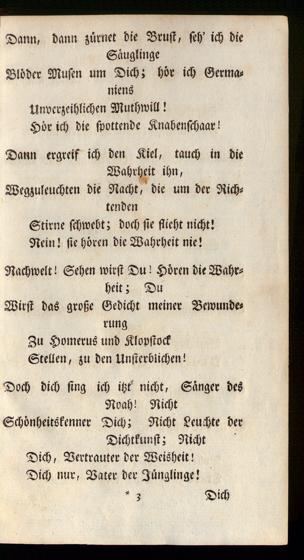 Dann, dann zürnet die Brust, seh' ich die
Säuglinge
Blöder Musen um Dich; hör ich Germa-
niens
Unverzeihlichen Muthwill!
Hör ich die spottende Knabenschaar!
Dann ergreif ich den Kiel, tauch in die
Wahrheit ihn,
Wegzuleuchten die Nacht, die um der Rich-
tenden
Stirne schwebt; doch sie flieht nicht!
Nein! sie hören die Wahrheit nie!
Nachwelt! Sehen wirst Du! Hören die Wahr-
heit; Du
Wirst das große Gedicht meiner Bewunde-
rung
Zu Homerus und Klopstock
Stellen, zu den Unsterblichen!
Doch dich sing ich itzt nicht, Sänger des
Noah! Nicht
Schönheitskenner Dich; Nicht Leuchte der
Dichtkunst; Nicht
Dich, Vertrauter der Weisheit!
Dich nur, Vater der Jünglinge!
* 3 Dich